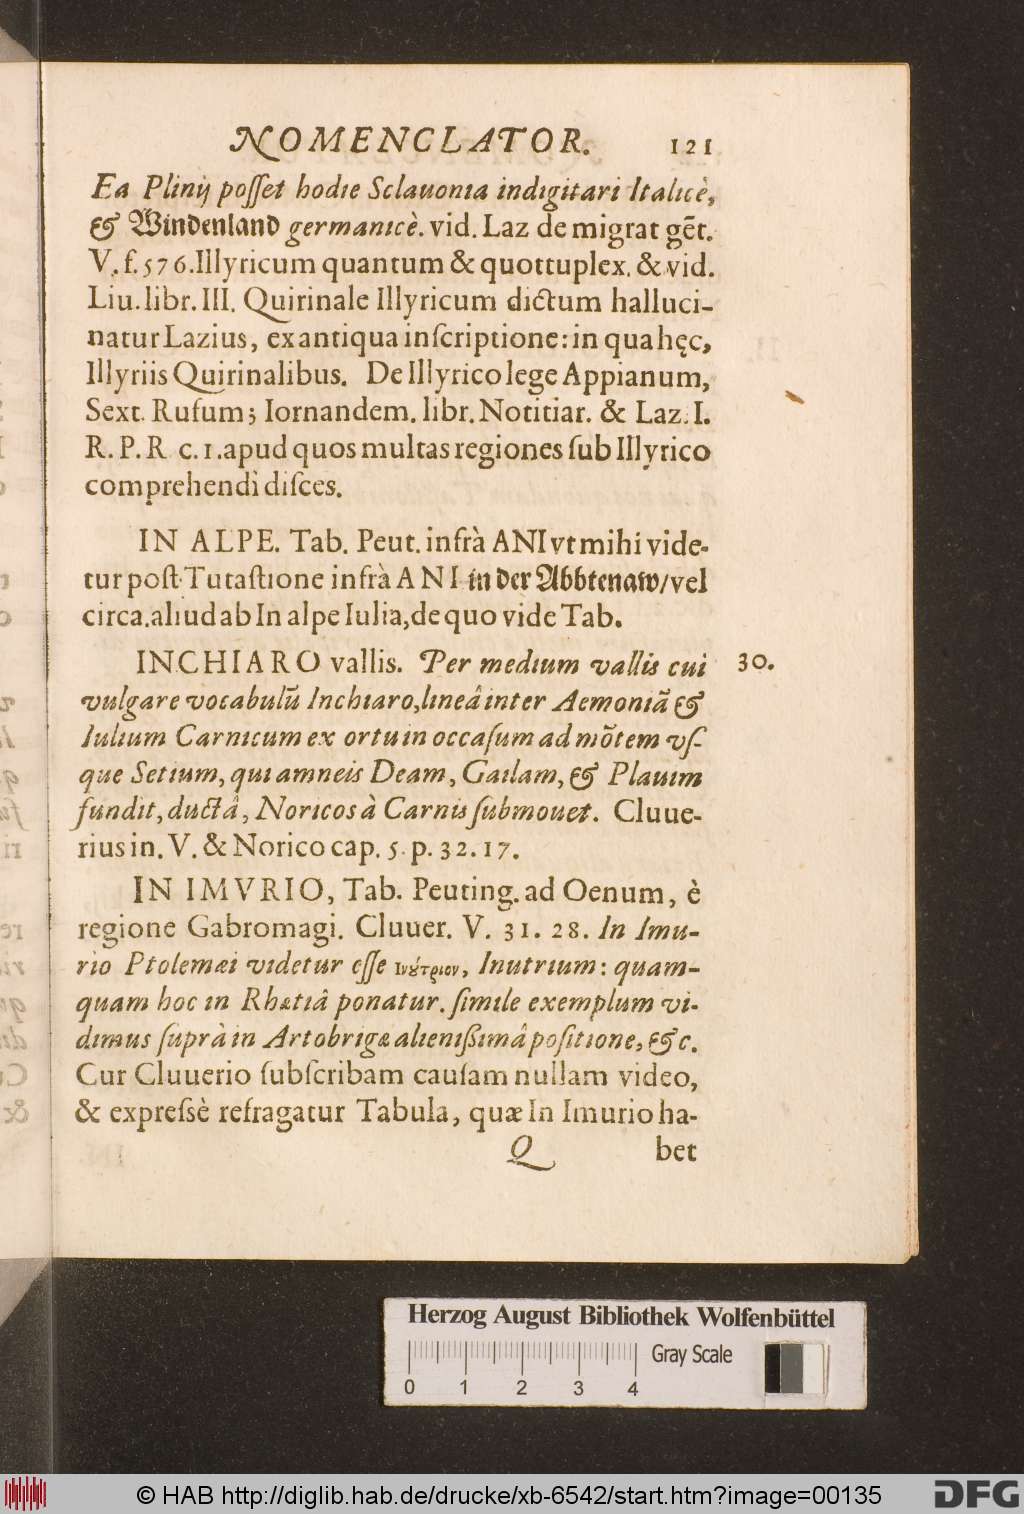 NOMENCLATOR. 121
Ea Plinij poſſet hodie Sclauonia indigitari Italicè,
& Windenland germanicè. vid. Laz de migrat gẽt.
V. f. 576. Illyricum quantum & quottuplex. & vid.
Liu. libr. III. Quirinale Illyricum dictum halluci-
natur Lazius, ex antiqua inſcriptione: in qua hęc,
Illyriis Quirinalibus. De Illyrico lege Appianum,
Sext. Rufum; Iornandem. libr. Notitiar. & Laz. I.
R. P. R c. 1. apud quos multas regiones ſub Illyrico
comprehendi diſces.
IN ALPE. Tab. Peut. infrà ANI vt mihi vide-
tur poſt Tutaſtione infrà ANI in der Abbtenaw/vel
circa. aliud ab In alpe Iulia, de quo vide Tab.
INCHIARO vallis. Per medium vallis cui 30.
vulgare vocabulũ Inchiaro, lineâ inter Aemoniã &
Iulium Carnicum ex ortu in occaſum ad mõtem vſ-
que Setium, qui amneis Deam, Gailam, & Plauim
fundit, ductâ, Noricos à Carnis ſubmouet. Cluue-
rius in. V. & Norico cap. 5 p. 32. 17.
IN IMVRIO, Tab. Peuting. ad Oenum, è
regione Gabromagi. Cluuer. V. 31. 28. In Imu-
rio Ptolemæi videtur eſſe Ινούτριον, Inutrium: quam-
quam hoc in Rhætiâ ponatur. ſimile exemplum vi-
dimus ſuprà in Artobrigæ alieniſsimâ poſitione, &c.
Cur Cluuerio ſubſcribam cauſam nullam video,
& expreſsè refragatur Tabula, quæ In Imurio ha-
Q bet
Herzog August Bibliothek Wolfenbüttel
Gray Scale
0 1 2 3 4
© HAB http://diglib.hab.de/drucke/xb-6542/start.htm?image=00135
DFG